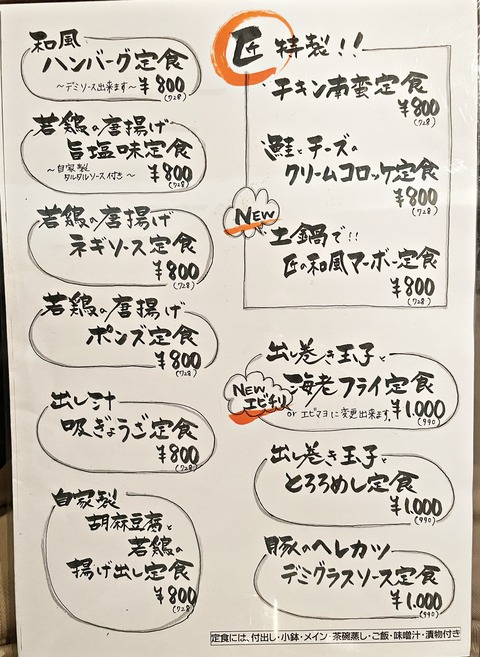 和風
ハンバーグ定食
〜デミソース出来ます〜 ¥800
(728)
若鶏の唐揚げ
旨塩味定食
〜自家製
タルタルソース付き〜 ¥800
(728)
若鶏の唐揚げ
ネギソース定食
¥800
(728)
若鶏の唐揚げ
ポンズ定食
¥800
(728)
出し汁
吸ぎょうざ定食
¥800
(728)
自家製
胡麻豆腐と
若鶏の
揚げ出し定食
¥800
(728)
匠 特製!!
チキン南蛮定食
¥800
(728)
鮭とチーズの
クリームコロッケ定食
¥800
(728)
NEW
土鍋で!!
匠の和風マーボー定食
¥800
(728)
出し巻き玉子と
NEW
エビチリ
海老フライ定食
or エビマヨに変更出来ます。 ¥1,000
(990)
出し巻き玉子と
とろろめし定食
¥1,000
(990)
豚のヘレカツ
デミグラスソース定食
¥1,000
(990)
定食には、付出し・小鉢・メイン・茶碗蒸し・ご飯・味噌汁・漬物付き